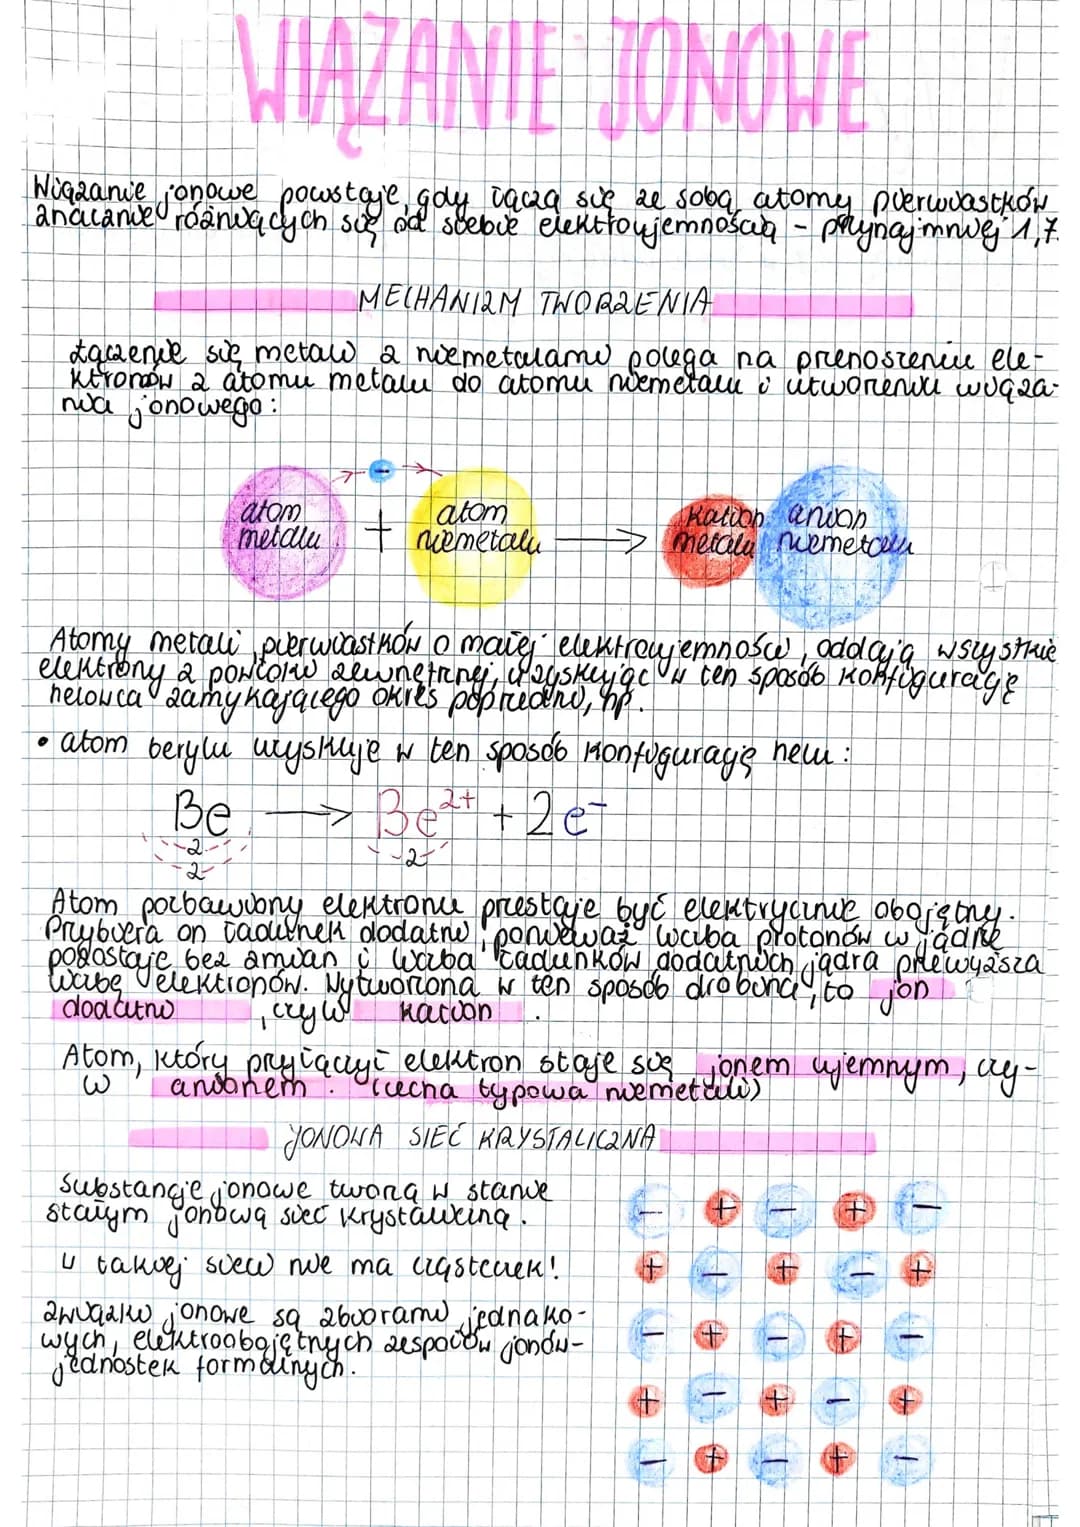 WIĄZANIE JONOWE
Wiązanie jonowe powstaje, gdy łączą się ze sobą atomy pierwiastków
znacznie różniących się od siebie elektroujemnością - przynajmniej 1,7.
MECHANIZM TWORZENIA
Łączenie się metali z niemetalami polega na przenoszeniu ele-
ktronów z atomu metalu do atomu niemetalu i utworzeniu wiąza-
nia jonowego:
-
atom metalu
+
atom niemetalu
→
kation metalu
anion niemetalu
Atomy metali, pierwiastków o małej elektroujemności, oddają wszystkie
elektrony z powłoki zewnętrznej, uzyskując w ten sposób konfigurację
helowca zamykającego okres poprzedni, np.
• atom berylu uzyskuje w ten sposób konfigurację helu:
Be → Be²⁺ + 2e⁻
2 2
2
Atom pozbawiony elektronu przestaje być elektrycznie obojętny.
Przybiera on ładunek dodatni, ponieważ liczba protonów w jądrze
pozostaje bez zmian i liczba ładunków dodatnich jądra przewyższa
liczbę elektronów. Wytworzona w ten sposób drobina, to jon
dodatni, czyli kation.
Atom, który przyłączył elektron staje się jonem ujemnym, czy-
li anionem. (cecha typowa niemetali)
JONOWA SIEĆ KRYSTALICZNA
Substancje jonowe tworzą w stanie
stałym jonową sieć krystaliczną.
W takiej sieci nie ma cząsteczek!
Związki jonowe są zbiorami jednako-
wych, elektroobojętnych zespołów jonów-
jednostek formalnych.
- + - + -
+ - + - +
- + - + -
+ - + - +
- + - + -